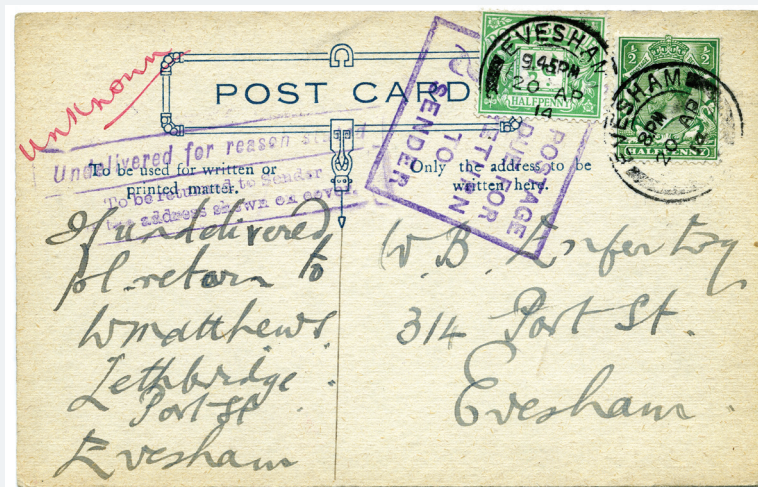 Unknown
POST CARD
Undelivered for reason stated
To be returned to Sender
at address shown on cover.
To be used for written or
printed matter.
Only the address to be
written here.
POSTAGE
DUE FOR
RETURN
TO
SENDER
EVESHAM
9.45PM
20 AP
14
HALFPENNY
½ ½
EVESHAM
8PM
20 AP
14
HALFPENNY
If undelivered
pl. return to
W Matthews
Lethbridge
Port St
Evesham
W. B. Esq
314 Port St.
Evesham